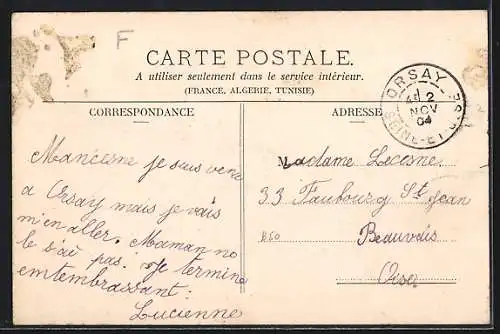 F
CARTE POSTALE.
A utiliser seulement dans le service intérieur.
(FRANCE, ALGERIE, TUNISIE)
CORRESPONDANCE
ADRESSE
ORSAY
2
NOV
04
SEINE-ET-OISE
je suis venu
a Orsay mais je vais
m'en aller. Maman no
le s'ai pas. Je termine
en t'embrassant:
Lucienne
Madame Lecesne
33 Faubourg St Jean
B60
Beauvais
Oise